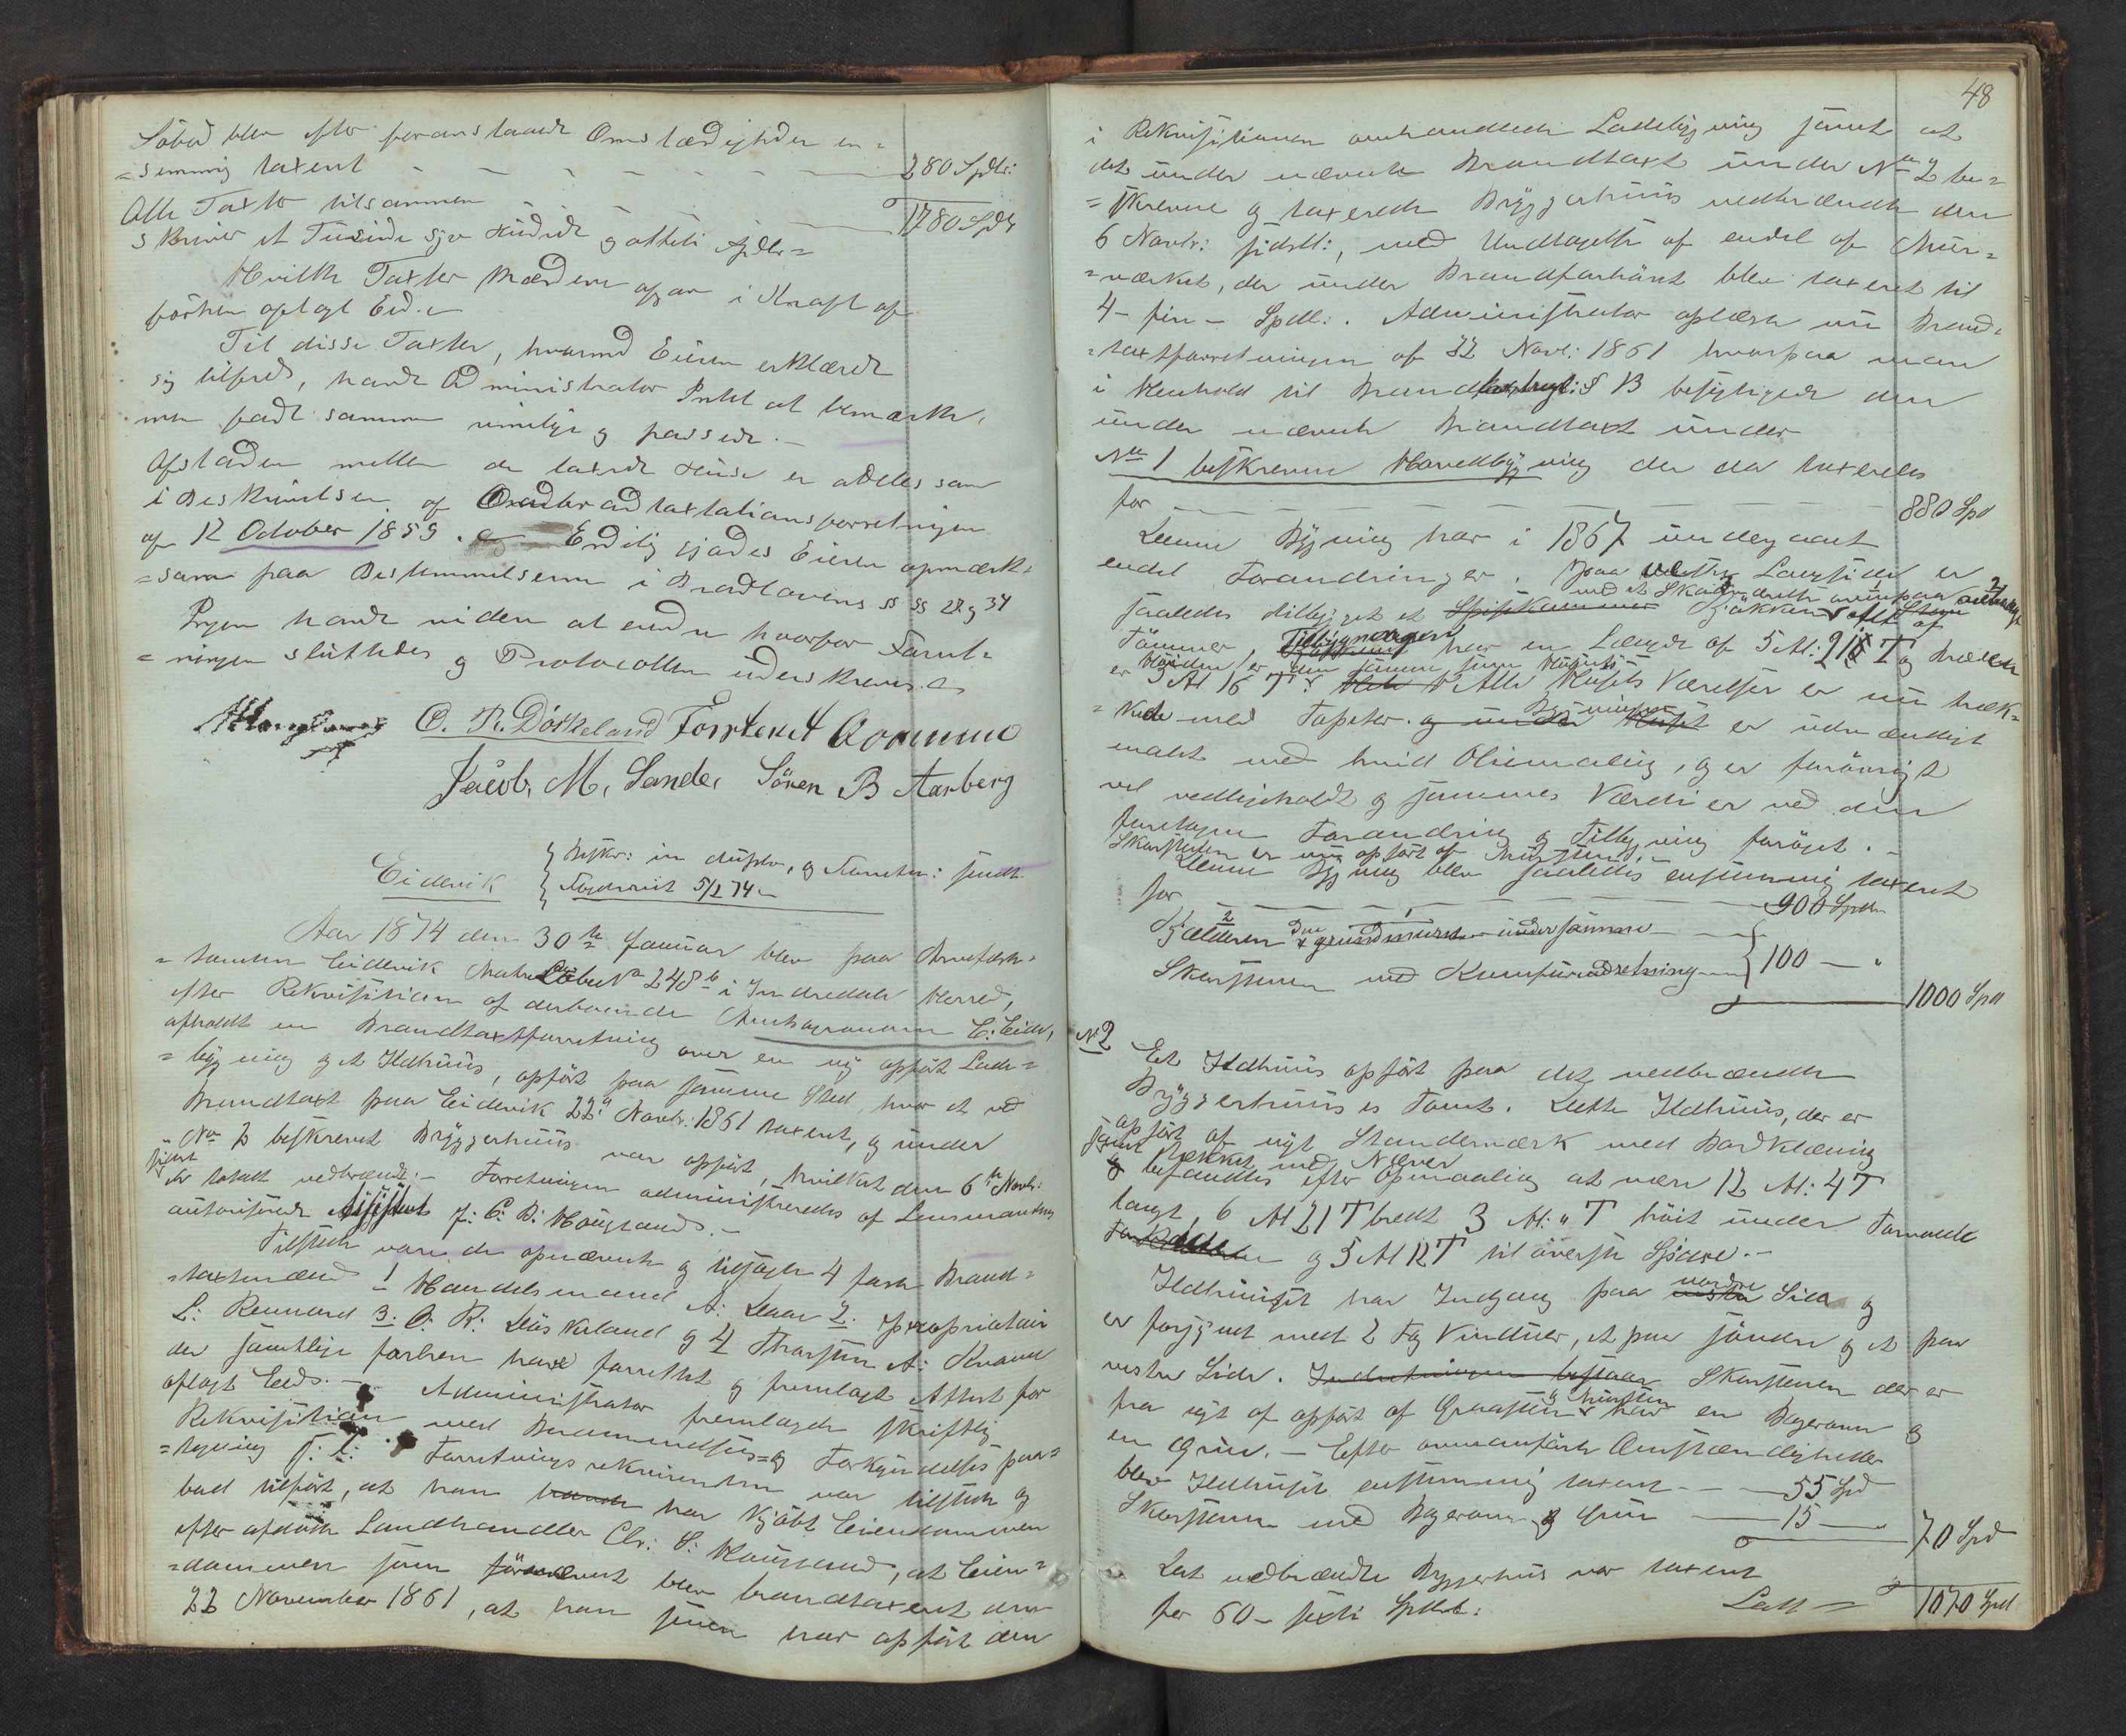 Söbod blev efter foranstaaende Omstændigheder en=
=stemmig taxeret 280 Spdlr:
Alle Taxter tilsammen 1780 Spdlr
skriver et Tusinde syv Hundrede og otteti Spdlr=
Hvilke Taxter Mændene afgav i Kraft af
förhen aflagt Eed.
Til disse Taxter, hvormed Eieren erklærede
sig tilfreds, havde Administrator Intet at bemærke,
men fandt samme rimelige og passende.
Afstanden mellem de taxerede Huse er aldeles som
i Beskrivelsen af Brandtaxtationsforretningen
af 12 October 1859. Endelig gjordes Eieren opmærk=
=som paa Bestemmelserne i Brandlovens §§ 28 og 34
Ingen havde videre at erindre hvorfor Forret=
=ningen sluttedes og Protocollen underskreves.
O. R. Döskeland Torsten A Qvamme
Jacob. M. Sande. Sören B Aarberg
Eidevik
Beskr: in duplo, og Forretn: sendt
Fogderiet 5/2 74
Aar 1874 den 30te Januar blev paa Arvefæste=
=tomten Eidevik Matr. Löbe No 248b i Indredale Herred,
efter Rekvisition af derboende Amtsagronom E: Eide,
afholdt en Brandtaxtforretning over en ny opfört Lade=
=bygning og et Ildhuus, opfört paa samme Sted, hvor et ved
Brandtaxt paa Eidevik 22de Novbr: 1861 taxeret, og under
No 2 beskrevet Bryggerhuus var opfört, hvilket den 6te Novbr:
sidst er totalt nedbrændt. Forretningen administreredes af Lensmandens
autoriserede Assistent J: C: D: Hougland.
Tilstede vare de opnævnte og tilsagte 4 faste Brand=
=taxtmænd 1 Handelsmand A: Daae 2. Proprietair
L: Rennord 3: O: R: Döskeland og 4 Thorsten A: Kvamme
der samtlige forhen have forrettet og fremlagt Attest for
aflagt Eeds. Administrator fremlagde skriftlig
Rekvisition med Berammelses= og Forkyndelses paa=
=tegning s: l: Forretningsrekvirenten var tilstede og
bad tilfört, at han havde har kjöbt Eiendommen
efter afdöde Landhandler Chr: S: Hougland, at Eien=
=dommen som förnævnt blev brandtaxeret den
22 November 1861, at han siden har opfört den
48
i Rekvisitionen omhandlede Ladebygning samt at
det under nævnte Brandtaxt under No 2 be=
=skrevne og taxerede Bryggerhuus nedbrændte den
6 Novbr: sidstl:, med Undtagelse af endel af Muur=
=værket, der under Brandforhöret blev taxeret til
4 - fire - Spdl:. Administrator oplæste nu Brand=
=taxtforretningen af 22 Novbr: 1861 hvorpaa man
i Henhold til Brand § 13 besigtigede den
under nævnte Brandtaxt under
No 1 beskrevne Hovedbygning der da taxeredes
for 880 Spd
Denne Bygning har i 1867 undergaaet
endel Forandringer. Paa vestre Langside er
saaledes tilbygget et Spisekammer Kjökken
Tömmer, Tilbygningen har en Længde af 5 Al: T og Bredden
er 3 Al 16 T Alle Husets Værelser er nu træk=
=kede med Tapeter. og under Huset Bygningen er udvendigt
malet med hvid Oliemaling, og er forövrigt
vel vedligeholdt og sammes Værdi er ved den
foretagne Forandring og Tilbygning foröget.
Skorstenen er ny opfört af Mursteen.
Denne Bygning blev saaledes enstemmig taxeret
for 900 Spdlr
Kjælderen 2 Do grundmuret under samme
Skorstenen med Komfurindretning 100 —
1000 Spd
No 2
Et Ildhuus opfört paa det nedbrændte
Bryggerhuus's Tomt. Dette Ildhuus, der er
opfört af nyt Standerværk med Bordklædning
samt tækket med Næver
og befandtes efter Opmaaling at være 12 Al: 4 T
langt, 6 Al 21 T bredt 3 Al: " T höit under Tornvolde
og 5 Al 12 T til överste Spidse.
Ildhuuset har Indgang paa vestre nordre Side og
er forsynet med 2 Fag Vinduer, et paa söndre og et paa
vestre Side. Indretningen bestaar Skorstenen der er
fra nyt af opfört af Graasteen og Mursteen har en Bagerovn og
en Grue. — Efter ovenanförte Omstændigheder
blev Ildhuset enstemmig taxeret 55 Spd
Skorstenen med Bagerovn og Grue 15 —
70 Spd
Det nedbrændte Bryggerhus var taxeret
for 60 - sexti Spdlr: Lall = 1070 Spd